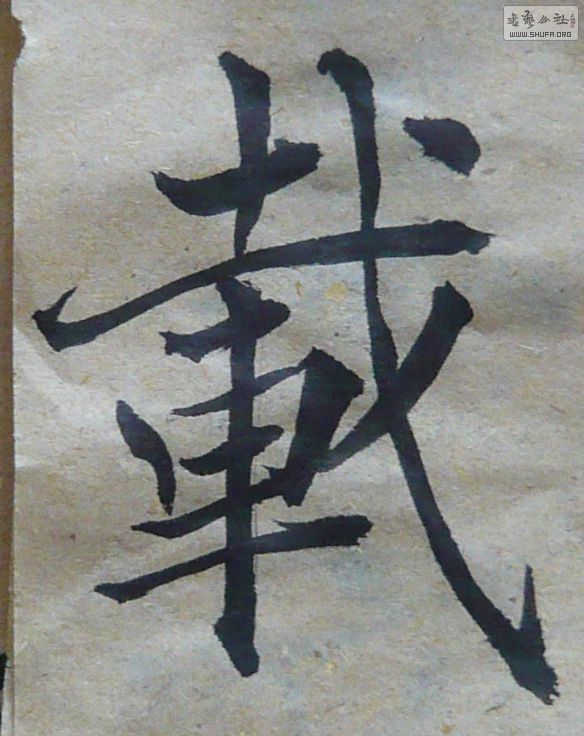 書艺公社
WWW.SHUFA.ORG
載